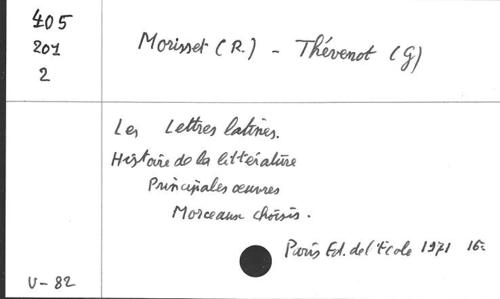 405
201
2
Morisset (R.) - Thévenot (G)
Les Lettres latines.
Histoire de la littérature
Principales œuvres
Morceaux choisis.
Paris Ed. de l'Ecole 1971 16:
V-82